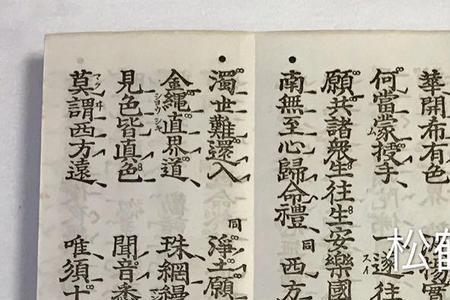 華開布有色
何當蒙授手 一遂往
願共諸衆生往生安樂國
南無至心歸命禮 同 西方
濁世難還入 同 淨土願
金繩直界道 珠網縵
見色皆真色 聞音悉
莫謂西方遠 唯須十
松